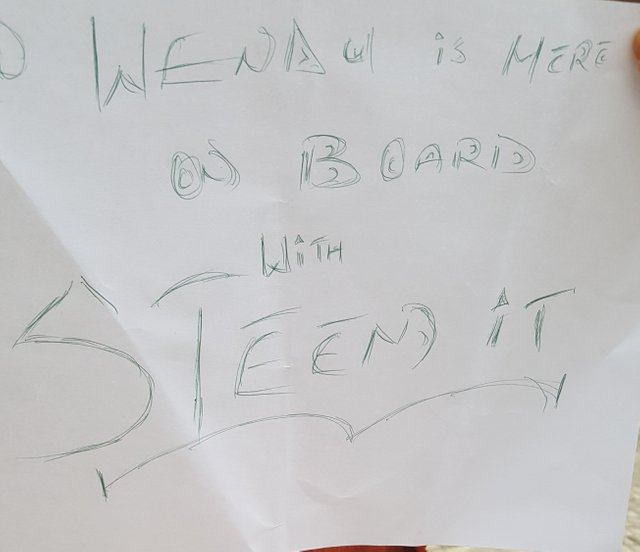 WENDYY is HERE
ON BOARD
WiTH
STEEM iT